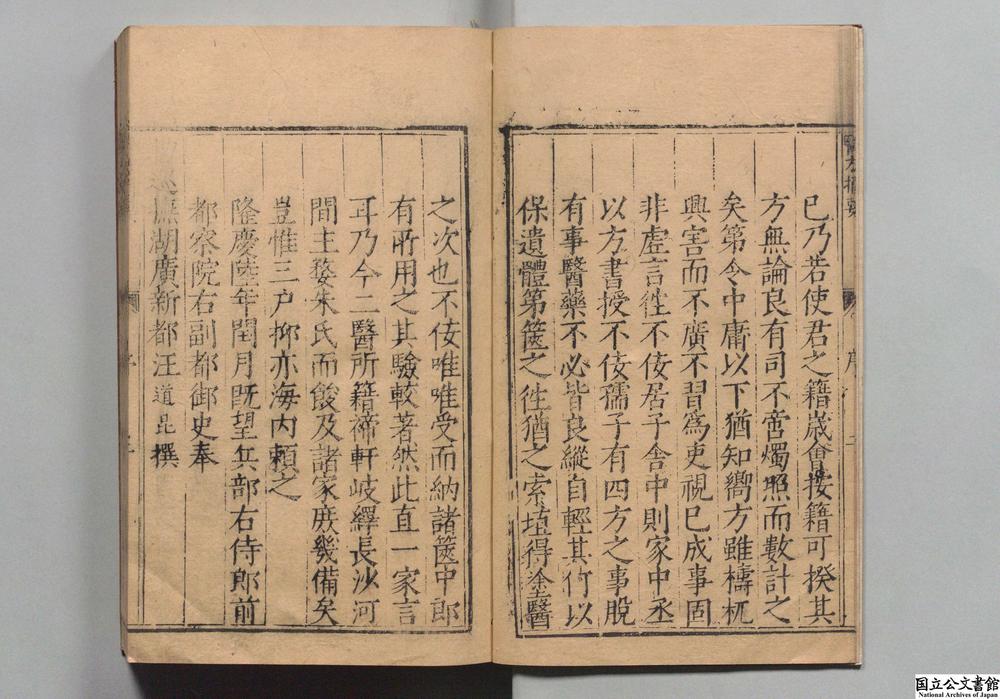 已乃若使君之籍歲會按籍可揆其
方無論良有司不啻燭照而數計之
矣第令中庸以下猶知嚮方雖檮杌
興害而不廣不習爲吏視已成事固
非虛言徃不佞居子舍中則家中丞
以方書授不佞孺子有四方之事脫
有事醫藥不必皆良縱自輕其何以
保遺體第篋之徃猶之索埴得塗醫
之次也不佞唯唯受而納諸篋中郎
有所用之其驗較著然此直一家言
耳乃今二醫所籍禘軒岐繹長沙河
間主婺朱氏而餕及諸家庶幾備矣
豈惟三户抑亦海內賴之
隆慶陸年閏月旣望兵部右侍郎前
都察院右副都御史奉
巡撫湖廣新都汪道昆撰
序
国立公文書館
National Archives of Japan